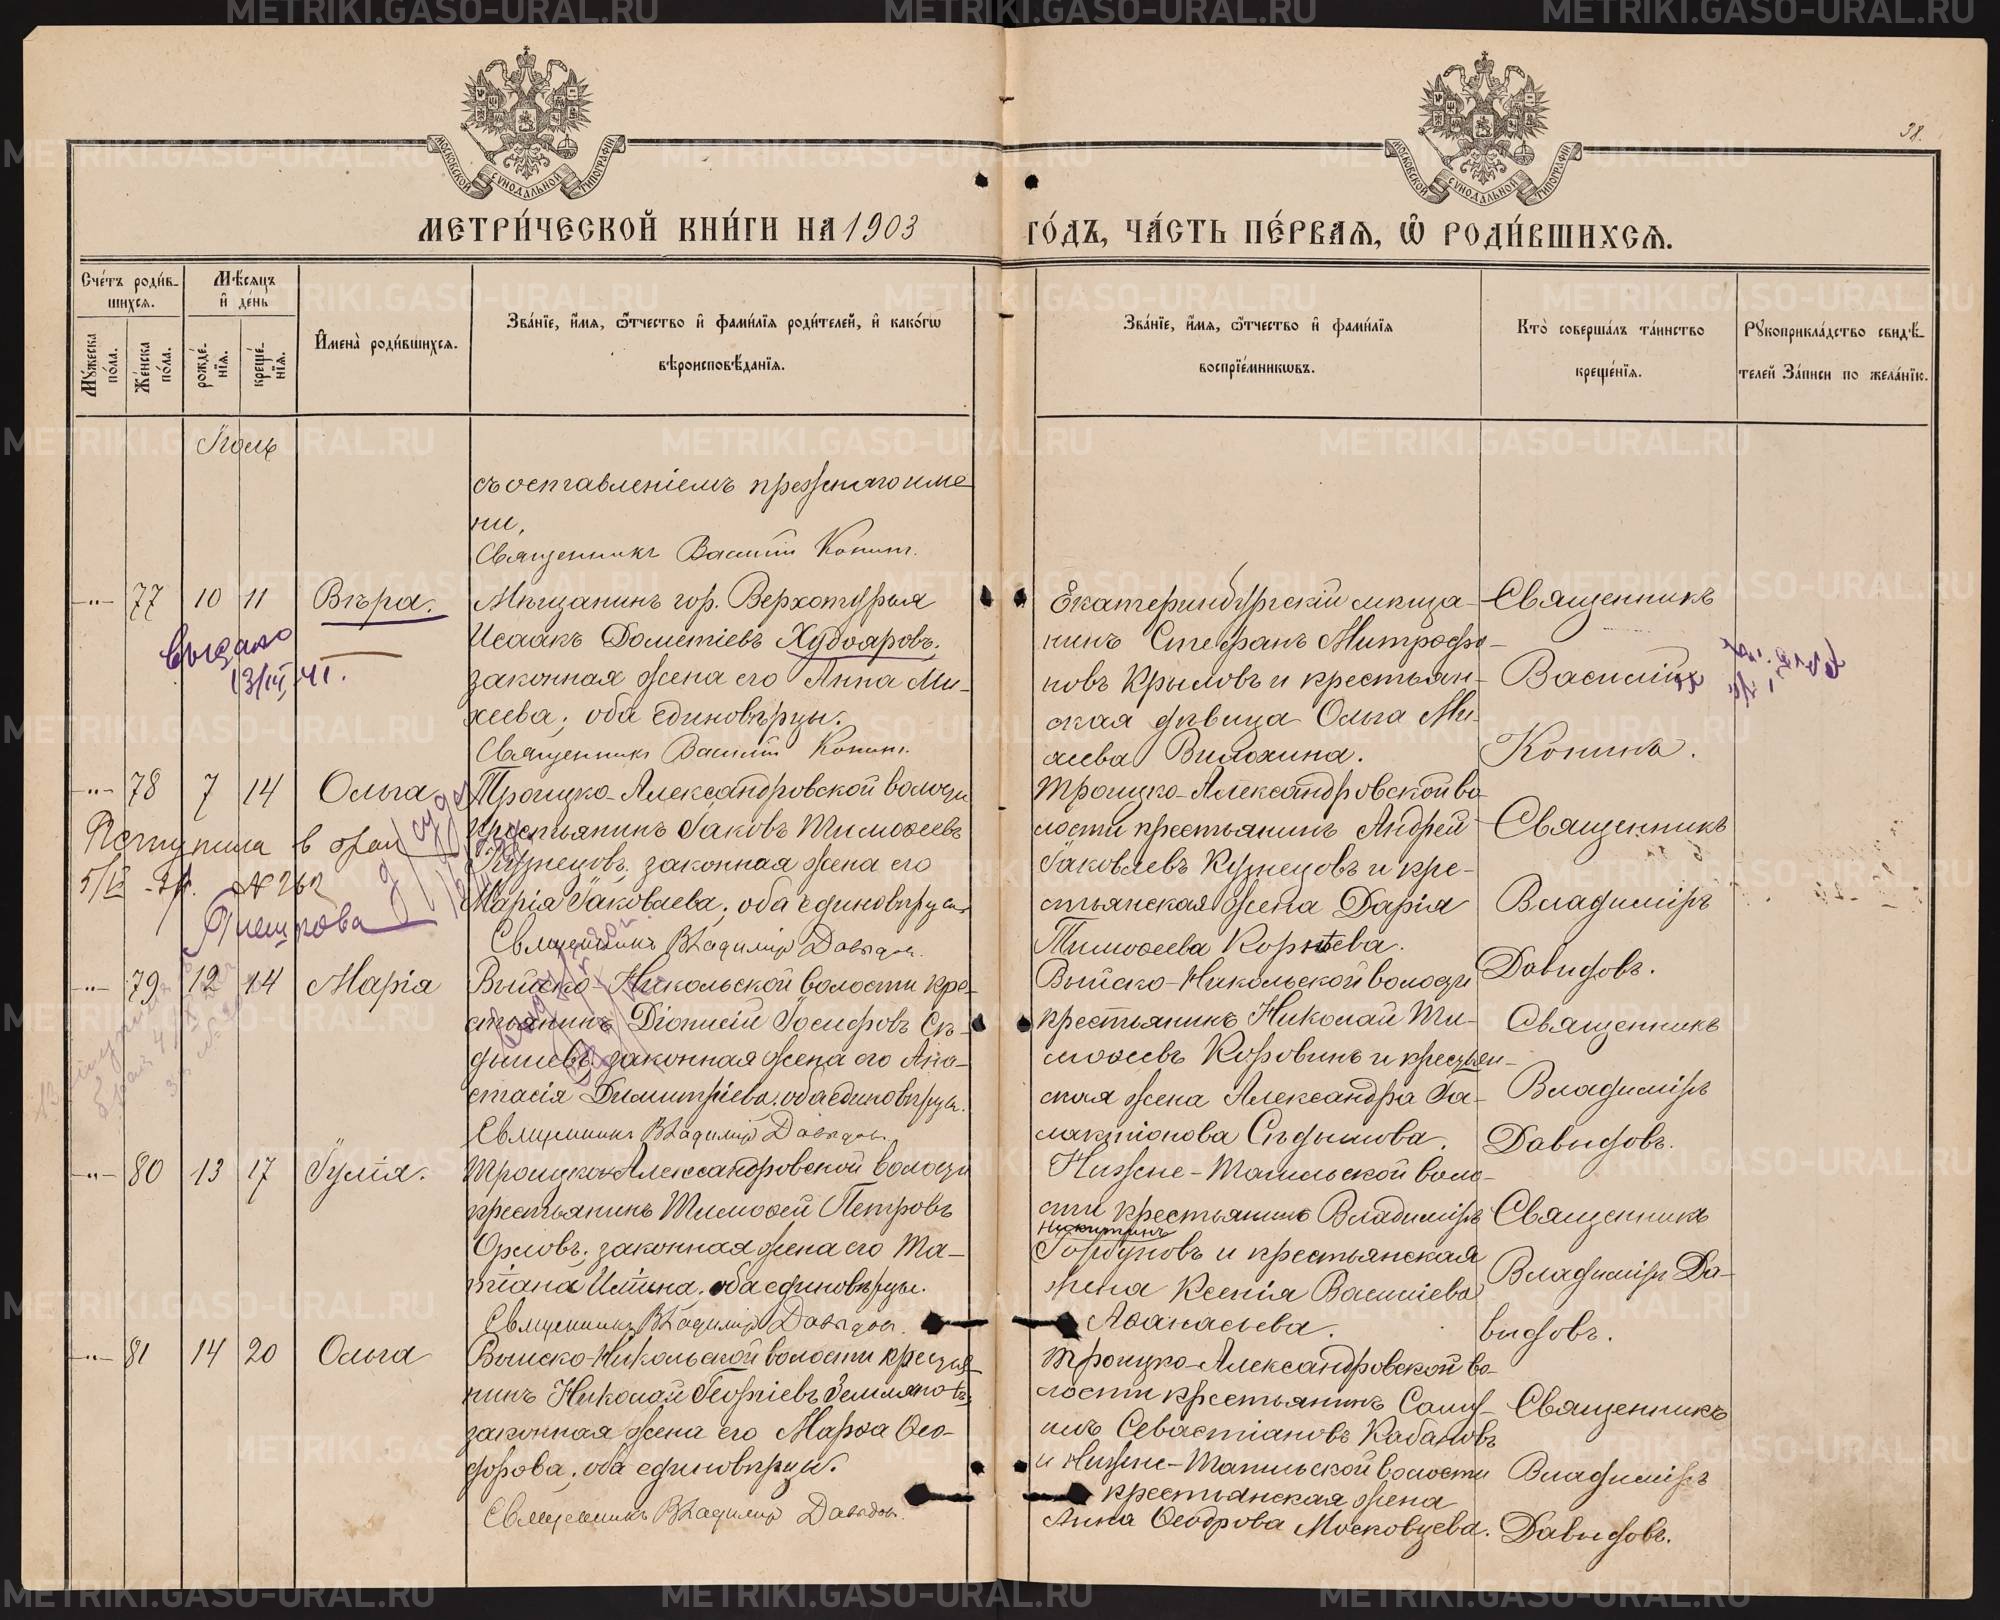 38.
МОСКОВСКОЙ СѴНОДАЛЬНОЙ ТИПОГРАФІИ
МОСКОВСКОЙ СѴНОДАЛЬНОЙ ТИПОГРАФІИ
МЕТРИ́ЧЕСКОЙ КНИ́ГИ НА 1903
ГО́ДЪ, ЧА́СТЬ ПЕ́РВАѦ, Ѽ РОДИ́ВШИХСѦ.
Сче́тъ роди́в-
шихсѧ.
Мꙋ́жеска по́ла.
Же́нска по́ла.
Мѣ́сѧцъ
и҆ де́нь
рожде́-
нїѧ.
креще́-
нїѧ.
И҆мена̀ роди́вшихсѧ.
Зва́нїе, и҆́мѧ, ѻ҆́тчество и҆ фами́лїѧ роди́телей, и҆ како́гѡ
вѣроисповѣ́данїѧ.
Зва́нїе, и҆́мѧ, ѻ҆́тчество и҆ фами́лїѧ
воспрїе́мникѡвъ.
Кто̀ соверша́лъ та́инство
креще́нїѧ.
Рꙋкоприкла́дство свидѣ́-
телей За́писи по жела́нїю.
Іюль
съ оставленіемъ прежняго име
ни.
Священникъ Василій Конин.
-"- 77 10 11 Вѣра.
Мѣщанинъ гор. Верхотурья
Исаакъ Дометіевъ Худояровъ,
законная жена его Анна Ми-
хеева; оба единовѣрцы.
Священникъ Василій Конин.
Екатеринбургскій мѣща-
нинъ Стефанъ Митрофа-
новъ Крыловъ и крестьян-
ская дѣвица Ольга Ми-
хеева Вилохина.
Священникъ
Василій
Конинъ.
Выдано
13/III 41.
-"- 78 7 14 Ольга
Троицко-Александровской волости
крестьянинъ Іаковъ Тимоѳеевъ
Кузнецовъ, законная жена его
Марія Іаковлева; оба единовѣрцы
Священникъ Владимір Давыдов.
Троицко-Александровской во-
лости крестьянинъ Андрей
Іаковлевъ Кузнецовъ и кре-
стьянская жена Дарія
Тимоѳеева Корнѣева.
Священникъ
Владиміръ
Давыдовъ.
Вступила в брак
№ 262
-"- 79 12 14 Марія
Выйско-Никольской волости кре-
стьянинъ Діонисій Іосифовъ Сѣ-
дышевъ, законная жена его Ана-
стасія Димитріева, оба единовѣрцы.
Священникъ Владимір Давыдов.
Выйско-Никольской волости
крестьянинъ Николай Ти-
моѳеевъ Коровинъ и крестьян-
ская жена Александра Га-
лактіонова Сѣдышова.
Священникъ
Владиміръ
Давыдовъ.
-"- 80 13 17 Іулія.
Троицко-Александровской волости
крестьянинъ Тимоѳей Петровъ
Орловъ, законная жена его Та-
тіана Ильина, оба единовѣрцы.
Священникъ Владимір Давыдов.
Нижне-Тагильской воло-
сти крестьянинъ Владиміръ
Никитинъ
Горбуновъ и крестьянская
жена Ксенія Василіева
Аѳанасьева.
Священникъ
Владиміръ Да-
выдовъ.
-"- 81 14 20 Ольга
Выйско-Никольской волости крестья-
нинъ Николай Георгіевъ Земляновъ,
законная жена его Марѳа Ѳео-
дорова, оба единовѣрцы.
Священникъ Владимір Давыдов.
Троицко-Александровской во-
лости крестьянинъ Саму-
илъ Севастіановъ Кабановъ
и Нижне-Тагильской волости
крестьянская жена
Анна Ѳеодорова Московцева.
Священникъ
Владиміръ
Давыдовъ.
METRIKI.GASO-URAL.RU